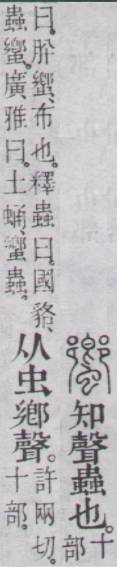 蠁知聲蟲也。十
部
曰。肸蠁、布也。釋蟲曰。國貉、
蟲蠁。廣雅曰。土蛹、蠁蟲。
从虫鄉聲。許兩切。
十部。